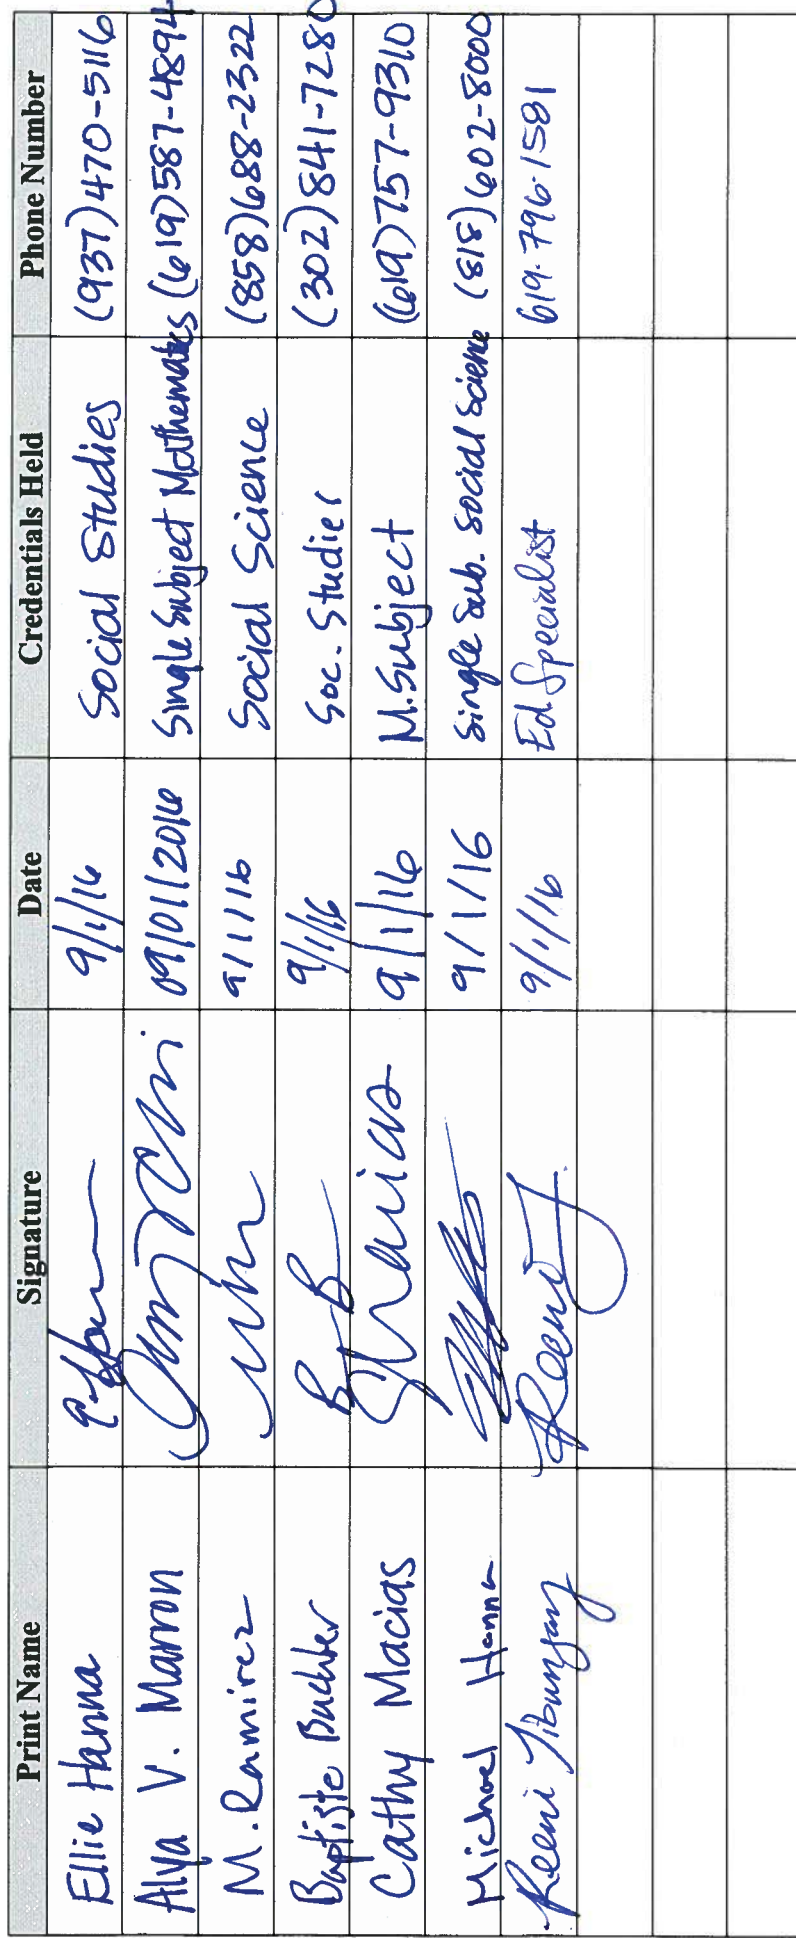 Print Name Signature Date Credentials Held Phone Number
Ellie Hanna 9/1/16 Social Studies (937)470-5116
Alya V. Marron 09/01/2016 Single Subject Mathematics (619)587-4894
M. Ramirez 9/1/16 Social Science (858)688-2322
Baptiste Buchler 9/1/16 Soc. Studies (302)841-7280
Cathy Macias 9/1/16 M.Subject (619)757-9310
Michael Hanna 9/1/16 Single Sub. Social Science (818)602-8000
Reeni 9/1/16 Ed Specialist 619.796.1581